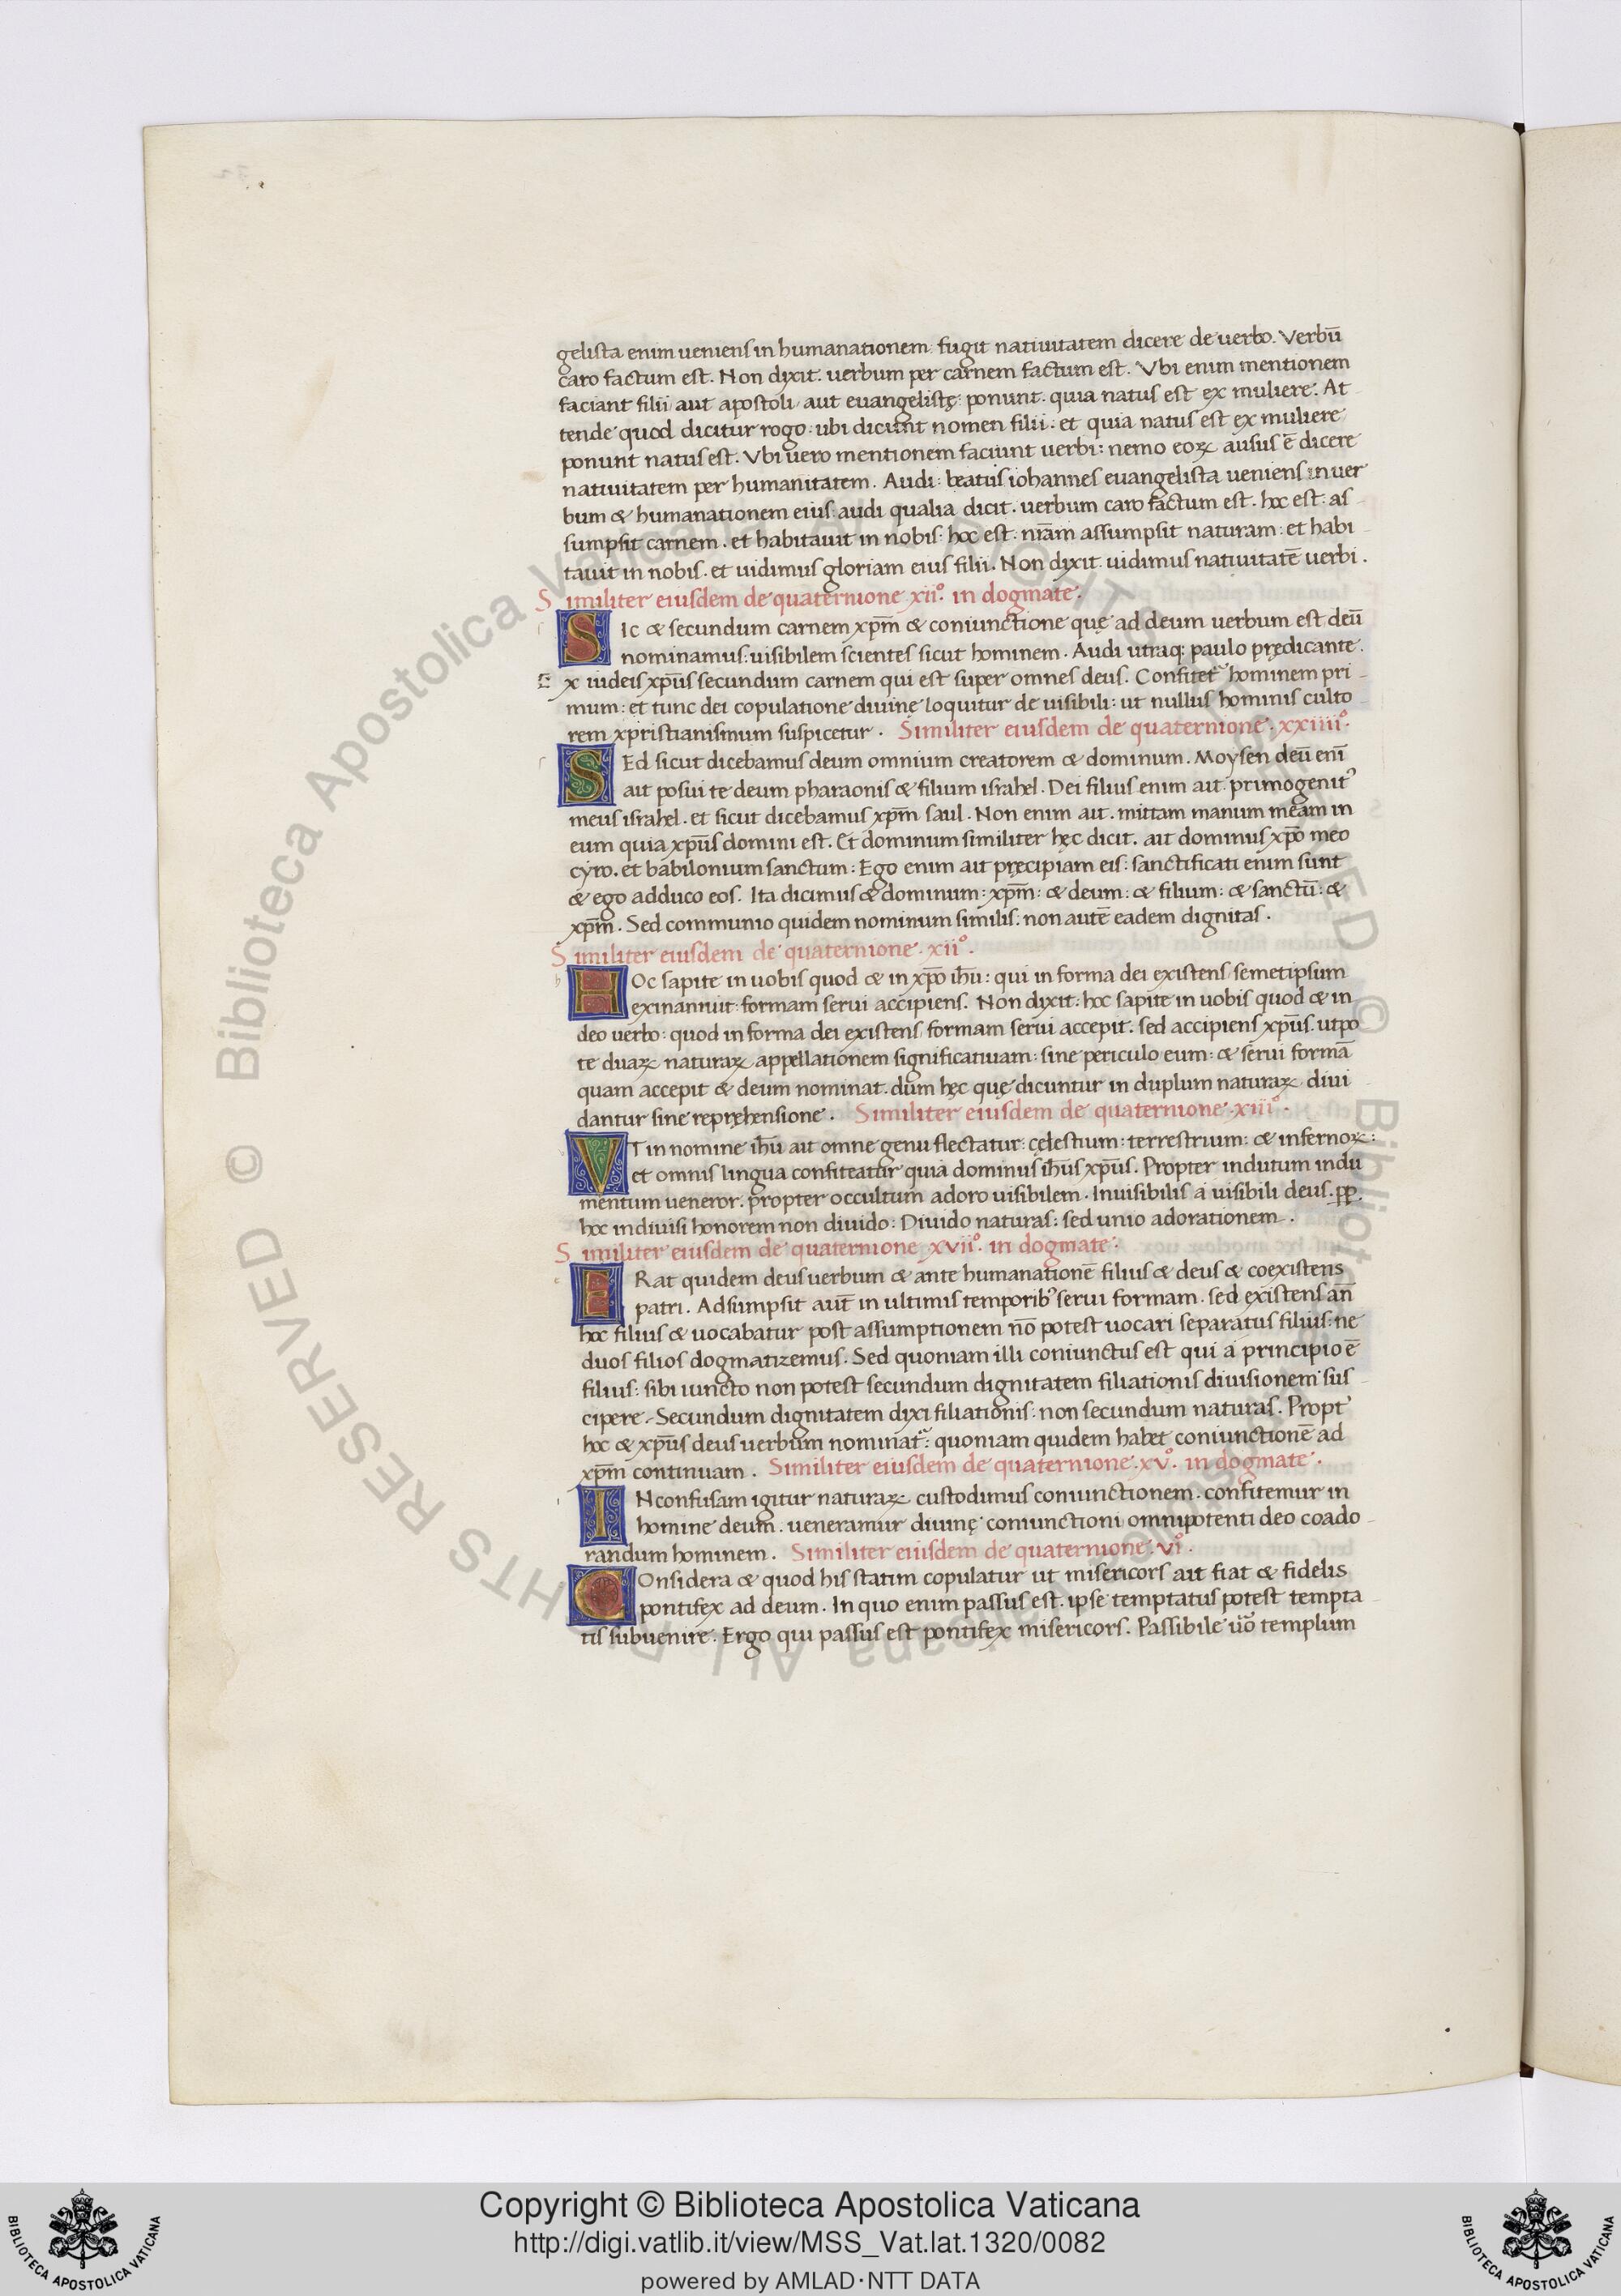 gelista enim ueniens in humanationem fugit natiuitatem dicere de uerbo. Verbū
caro factum est. Non dyxit. uerbum per carnem factum est. Vbi enim mentionem
faciant filii aut apostoli aut euangelistę: ponunt. quia natus est ex muliere. At
tende quod dicitur rogo: ubi dicunt nomen filii: et quia natus est ex muliere
ponunt natus est. Vbi uero mentionem faciunt uerbi: nemo eoꝝ ausus ē dicere
natiuitatem per humanitatem. Audi: beatus iohannes euangelista ueniens in uer
bum & humanationem eius: audi qualia dicit. uerbum caro factum est. hoc est: as
sumpsit carnem. et habitauit in nobis: hoc est. nr̄am assumpsit naturam: et habi
tauit in nobis. et uidimus gloriam eius filii. Non dyxit. uidimus natiuitatē uerbi.
Similiter eiusdem de quaternione xii°. in dogmate.
SIc & secundum carnem xp̄m & coniunctione quę ad deum uerbum est deū
nominamus: uisibilem scientes sicut hominem. Audi utraq: paulo prędicante.
Ex iudeis xp̄us secundum carnem qui est super omnes deus. Confitetᵃ hominem pri
mum: et tunc dei copulatione diuinę loquitur de uisibili: ut nullus hominis culto
rem xpristianismum suspicetur. Similiter eiusdem de quaternione. xxiiii°.
SEd sicut dicebamus deum omnium creatorem & dominum. Moysen deū enī
ait posui te deum pharaonis & filium israhel. Dei filius enim ait. primogenitꝰ
meus israhel. et sicut dicebamus xp̄m saul. Non enim ait. mittam manum meam in
eum quia xp̄us domini est. Et dominum similiter hęc dicit. ait dominus xp̄o meo
cyro. et babilonium sanctum: Ego enim ait pręcipiam eis: sanctificati enim sunt
& ego adduco eos. Ita dicimus & dominum: xp̄m: & deum: & filium: & sanctū: &
xp̄m. Sed communio quidem nominum similis: non autē eadem dignitas.
Similiter eiusdem de quaternione. xii°.
HOc sapite in uobis quod & in xp̄o ih̄u: qui in forma dei existens semetipsum
exinanniuit: formam serui accipiens. Non dyxit: hoc sapite in uobis quod & in
deo uerbo: quod in forma dei existens formam serui accepit. sed accipiens xp̄us. utpo
te duaꝝ naturaꝝ appellationem significatiuam: sine periculo eum: & serui formā
quam accepit & deum nominat. dum hęc quę dicuntur in duplum naturaꝝ diui
dantur sine repręhensione. Similiter eiusdem de quaternione. xiii°.
VT in nomine ih̄u ait omne genu flectatur: cęlestium: terrestrium: & infernoꝝ:
et omnis lingua confiteatur quia dominus ih̄us xp̄us. Propter indutum indu
mentum ueneror. propter occultum adoro uisibilem. Inuisibilis a uisibili deus. ꝓp̄
hoc indiuisi honorem non diuido: Diuido naturas: sed unio adorationem.
Similiter eiusdem de quaternione xvii°. in dogmate.
ERat quidem deus uerbum & ante humanationē filius & deus & coexistens
patri. Adsumpsit aut̄ in ultimis temporibꝰ serui formam. sed existens an̄
hoc filius & uocabatur post assumptionem nō potest uocari separatus filius: ne
duos filios dogmatizemus. Sed quoniam illi coniunctus est qui a principio ē
filius: sibi iuncto non potest secundum dignitatem filiationis diuisionem sus
cipere. Secundum dignitatem dyxi filiationis: non secundum naturas. Proptꝰ
hoc & xp̄us deus uerbum nominatᵃ: quoniam quidem habet coniunctionē ad
xp̄m continuam. Similiter eiusdem de quaternione. xv°. in dogmate.
INconfusam igitur naturaꝝ custodimus coniunctionem. confitemur in
homine deum. ueneramur diuinę coniunctioni omnipotenti deo coado
randum hominem. Similiter eiusdem de quaternione. vi°.
COnsidera & quod his statim copulatur ut misericors ait fiat & fidelis
pontifex ad deum. In quo enim passus est. ipse temptatus potest tempta
tis subuenire. Ergo qui passus est pontifex misericors. Passibile ūo templum
Copyright © Biblioteca Apostolica Vaticana
http://digi.vatlib.it/view/MSS_Vat.lat.1320/0082
powered by AMLAD·NTT DATA
BIBLIOTECA APOSTOLICA VATICANA
BIBLIOTECA APOSTOLICA VATICANA